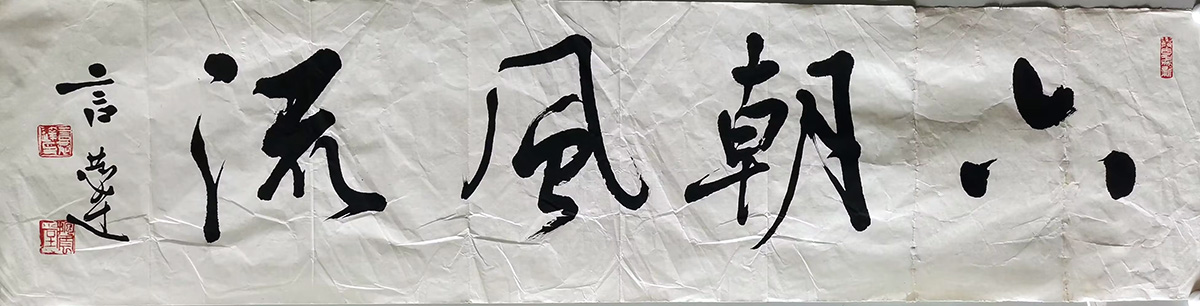 六朝風流
言恭達